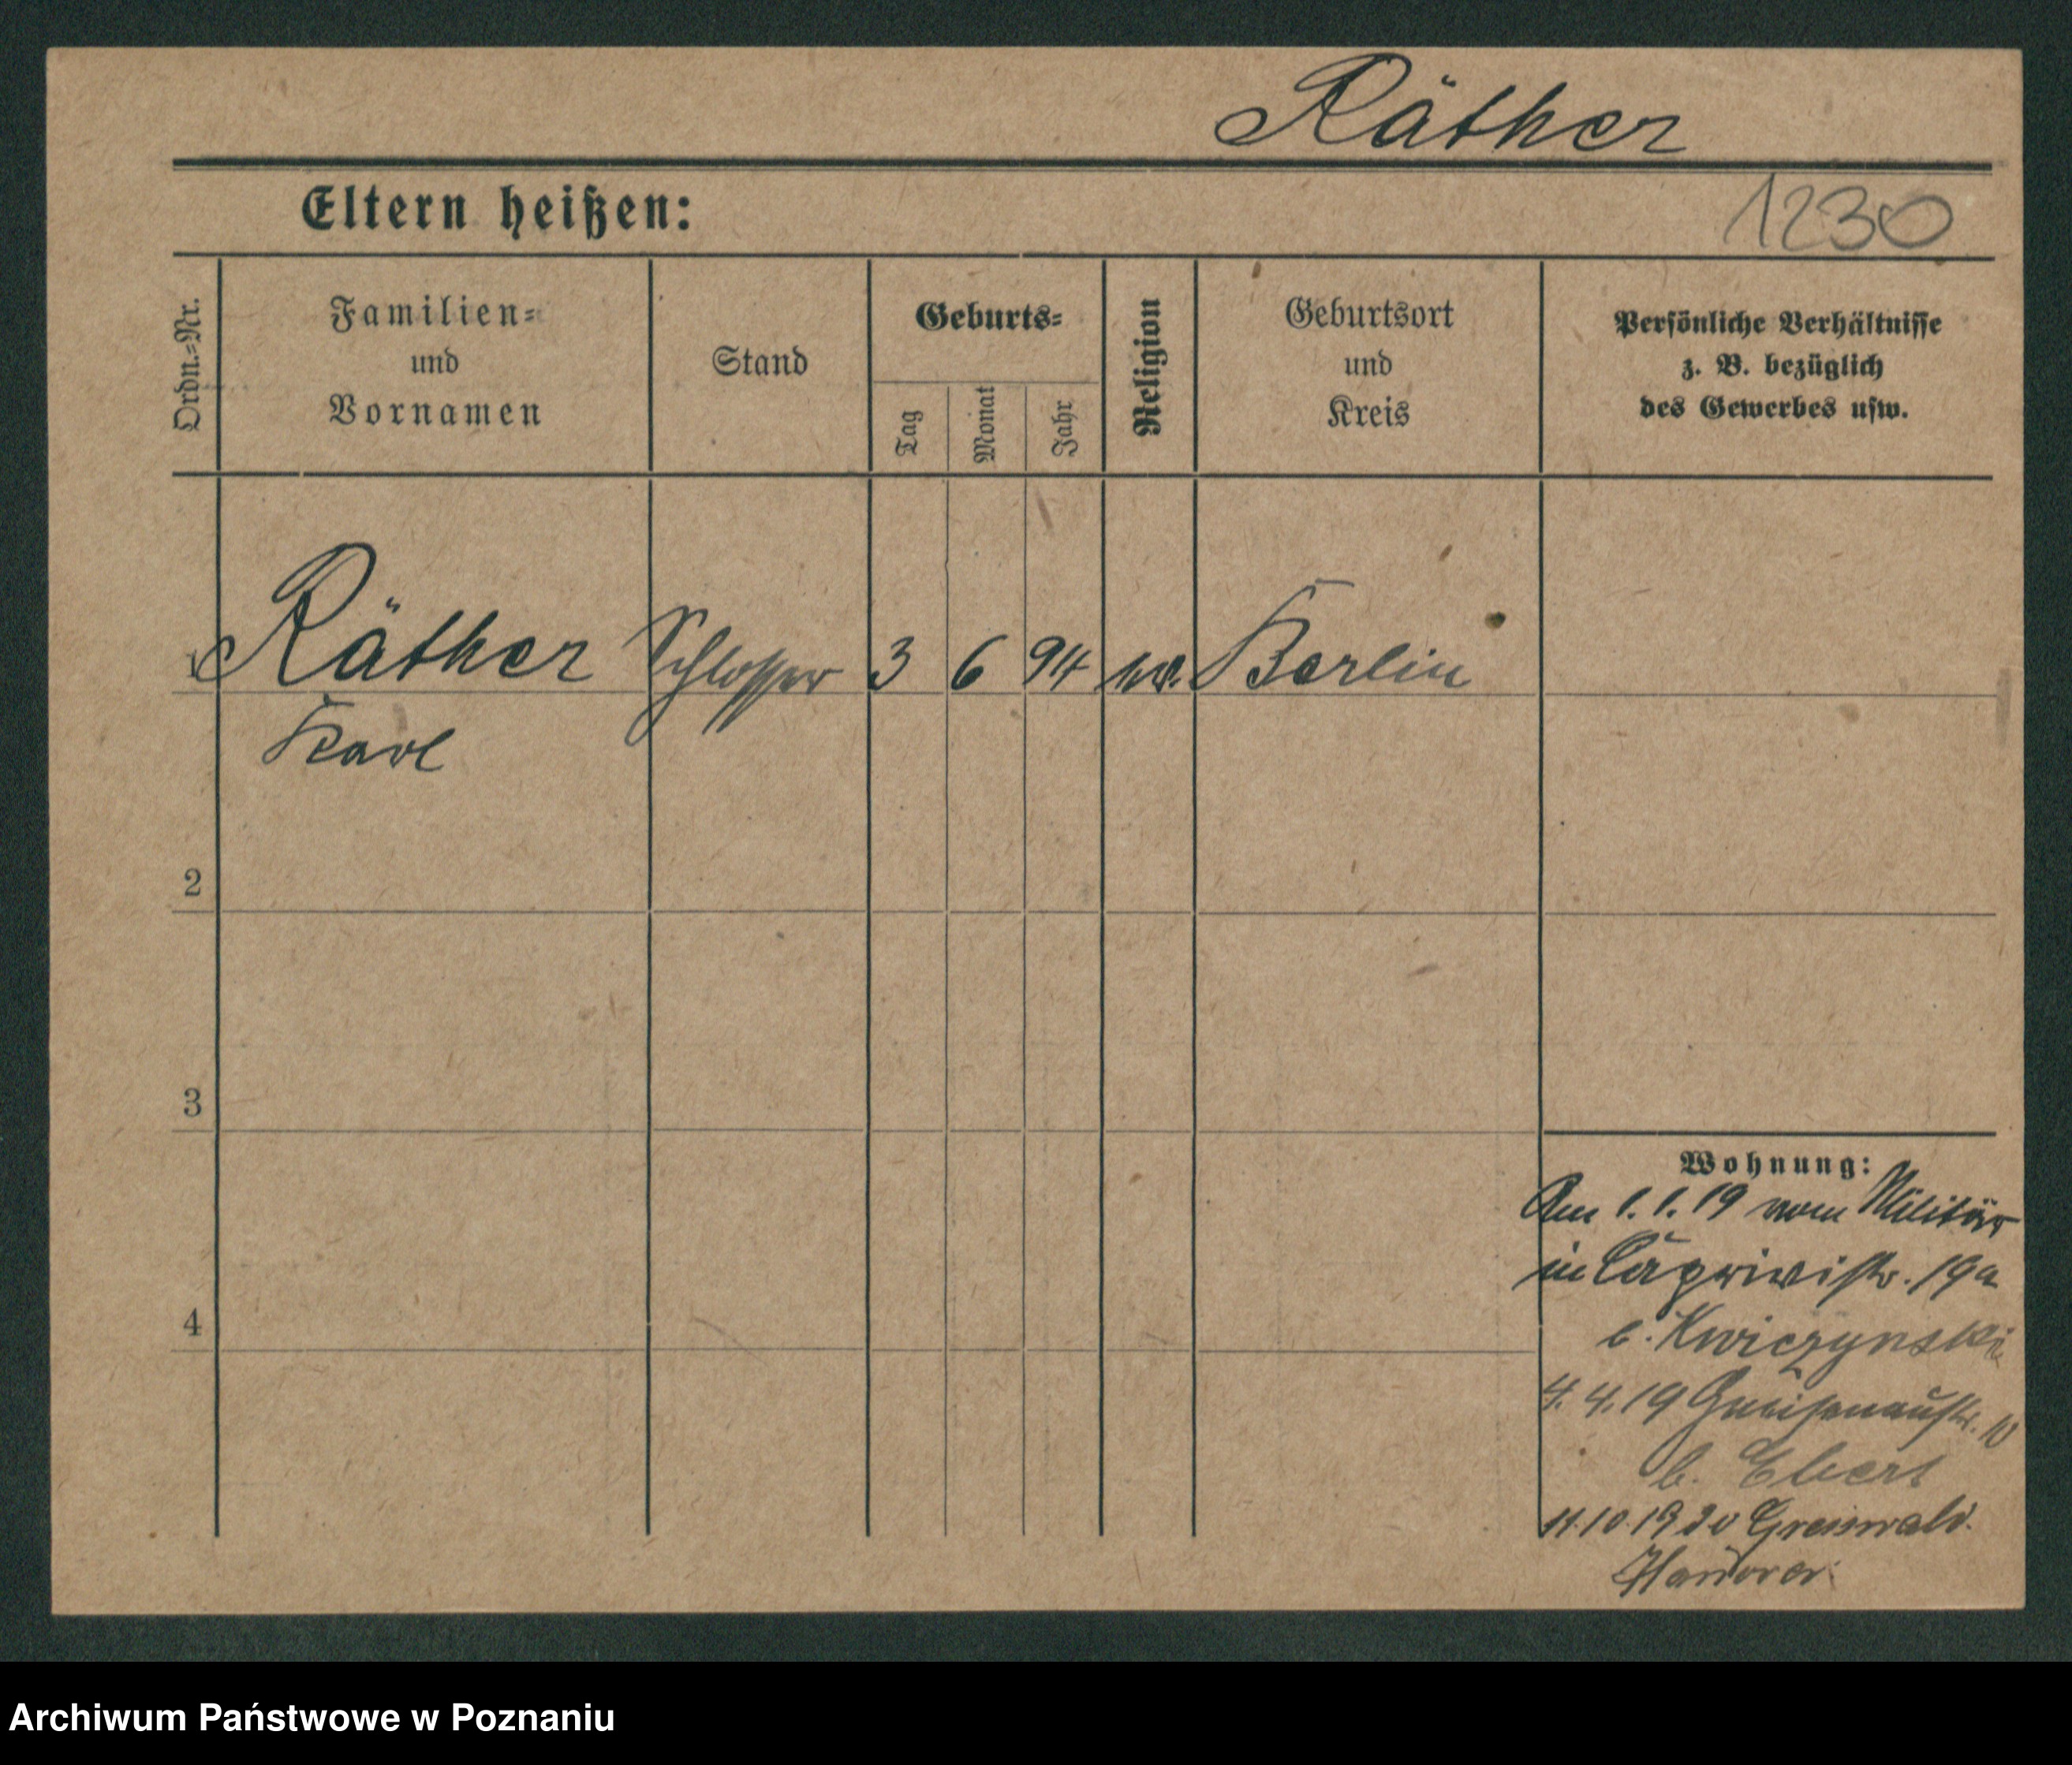 Räther
Eltern heißen:
1230
Ordn.=Nr.
Familien=
und
Vornamen
Stand
Geburts=
Tag
Monat
Jahr
Religion
Geburtsort
und
Kreis
Persönliche Verhältnisse
z. B. bezüglich
des Gewerbes usw.
Räther Schlosser 3 6 94 Berlin
Karl
2
3
4
Wohnung:
Am 1.1.19 vom Militär
in Caprivistr. 19a
b. Kwiczynski
4.4.19 Gneisenaustr. 10
b. Ebert
11.10.1920
Hanover
Archiwum Państwowe w Poznaniu